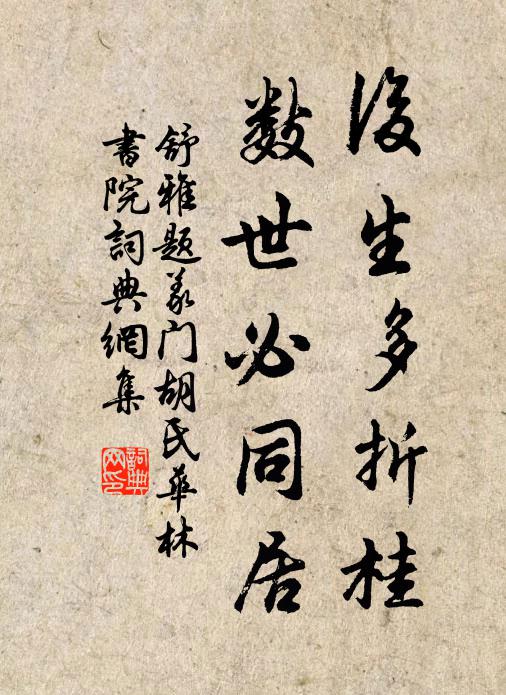 後生多折桂
数世必同居
舒雅题义门胡氏華林
書院詞典網集
詞典
网印